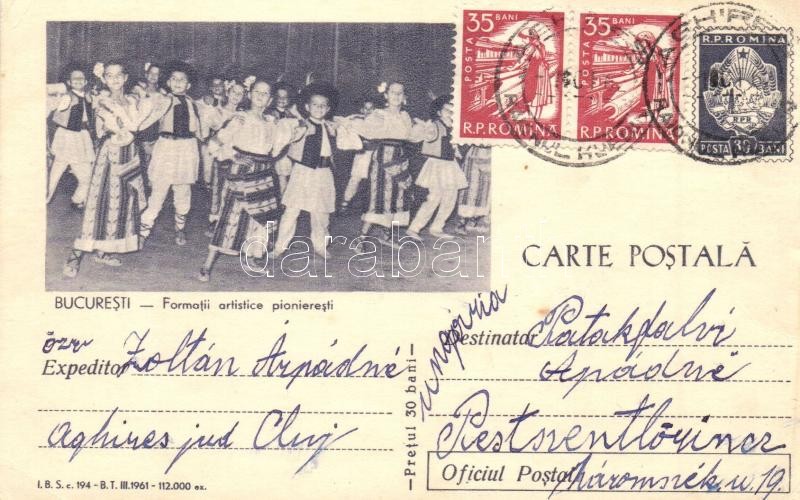 35 BANI
POSTA
R.P.ROMINA
35 BANI
POSTA
R.P.ROMINA
R.P.ROMINA
RPR
POSTA 30 BANI
darabanth
CARTE POȘTALĂ
BUCUREȘTI — Formații artistice pionierești
özv
Expeditor Zoltán Árpádné
Aghires jud Cluj
— Prețul 30 bani —
Ungaria
Destinatar Patakfalvi
Apádné
Pestszentlörincz
Oficiul Poștal Háromszék u. 19.
I.B.S. c. 194 - B.T. III.1961 - 112.000 ex.